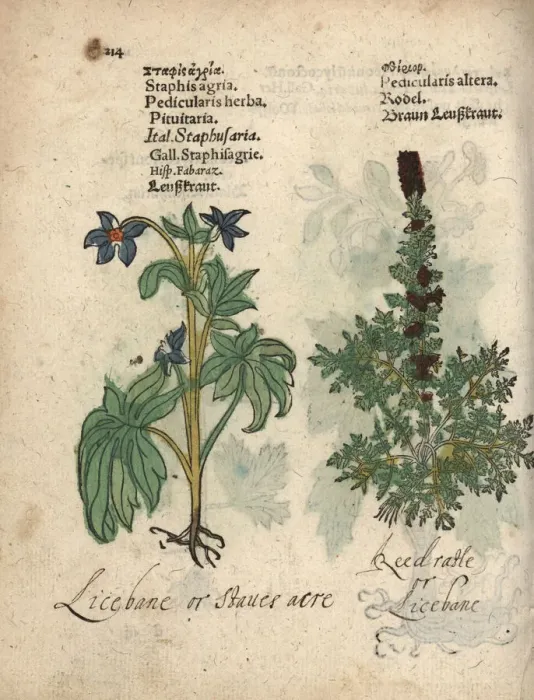 214
Σταφὶς ἀγρία.
Staphis agria.
Pedicularis herba.
Pituitaria.
Ital. Staphusaria.
Gall. Staphisagrie.
Hisp. Fabaraz.
Leußkraut.
Pedicularis altera.
Rodel.
Braun Leußkraut.
Licebane or Staues acre
Reed ratle
or
Licebane